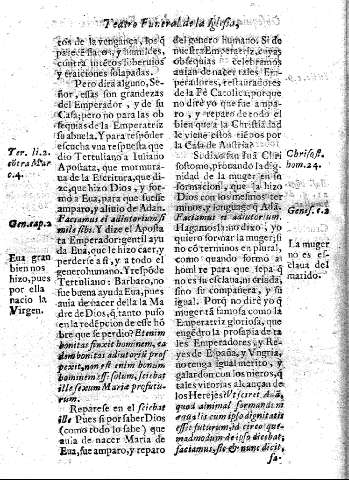 Teatro Funeral de la Iglesia,
tos de la vengança, los q̃
parecē flacos, y humildes,
contra intētos soberuios
y traiciones solapadas.
Pero dirà alguno, Se-
ñor, essas son grandezas
del Emperador, y de su
Casa; pero no para las ob-
sequias de la Emperatriz
su abuela. Y para respōder
escucha vna respuesta que
dio Tertuliano a Iuliano
Apostata, que murmura-
ua de la Escritura, que di-
ze, que hizo Dios, y for-
mò a Eua, para que fuesse
amparo, y aliuio de Adan.
Faciamus ei adiutorium si
mile sibi. Y dize el Aposta
ta Emperador: gentil ayu
da Eua, que le hizo caer, y
perderse a sì, y a todo el
genero humano. Y respōde
Tertuliano: Barbaro, no
fue buena ayuda Eua, pues
auia de nacer della la Ma
dre de Dios, q̃ tanto puso
en la redēpcion de esse hō
bre que se perdiò? Etenim
bonitas finxit hominem, ea
dem bonitas adiutoriū pros
pexit, non est enim bonum
hominem esse solum, sciebat
ille sexum Mariæ profutu-
rum.
Reparese en el sciebat
ille Pues si por saber Dios
(como todo lo sabe) que
auia de nacer Maria de
Eua, fue amparo, y reparo
Ter. li. 2.
cōtra Mar
c. 4.
Gen. cap. 2
Eua gran
bien nos
hizo, pues
por ella
nacio la
Virgen.
del genero humano. Si de
nuestra Emperatriz, cuyas
obsequias celebramos
auian de nacer tales Em-
peradores, restauradores
de la Fè Catolica; porque
no dirè yo que fue ampa-
ro, y reparo de todo el
bien que a la Christiādad
le viene estos tiēpos por
la Casa de Austria?
San Chri
sostomo, probando la dig-
nidad de la muger en su
formacion, que la hizo
Dios con los mesmos ter
minos, y lenguage, q̃ Adā.
Faciamus ei adiutorium.
Hagamosla: no dixo, yo
quiero formar la muger; si
no cō terminos en plural,
como quando formò al
hombre para que sepa q̃
no es su esclaua, ni criada,
sino su compañera, y su
igual. Porq̃ no dirè yo q̃
muger tā famosa como la
Emperatriz gloriosa, que
engēdrò la prosapia de ta
les Emperadores, y Re-
yes de España, y Vngria,
no tenga igual merito, y
galardon con los nietos, q̃
tales vitorias alcançan de
los Herejes?
quod animal formandi
æqualis cum ipso dignitatis
esse futurum, id circo que-
madmodum de ipso dicebat;
faciamus, sic & nunc dicit,
fa-
Chrisost.
hom. 24.
Genes. c. 2
La muger
no es es
claua del
marido.